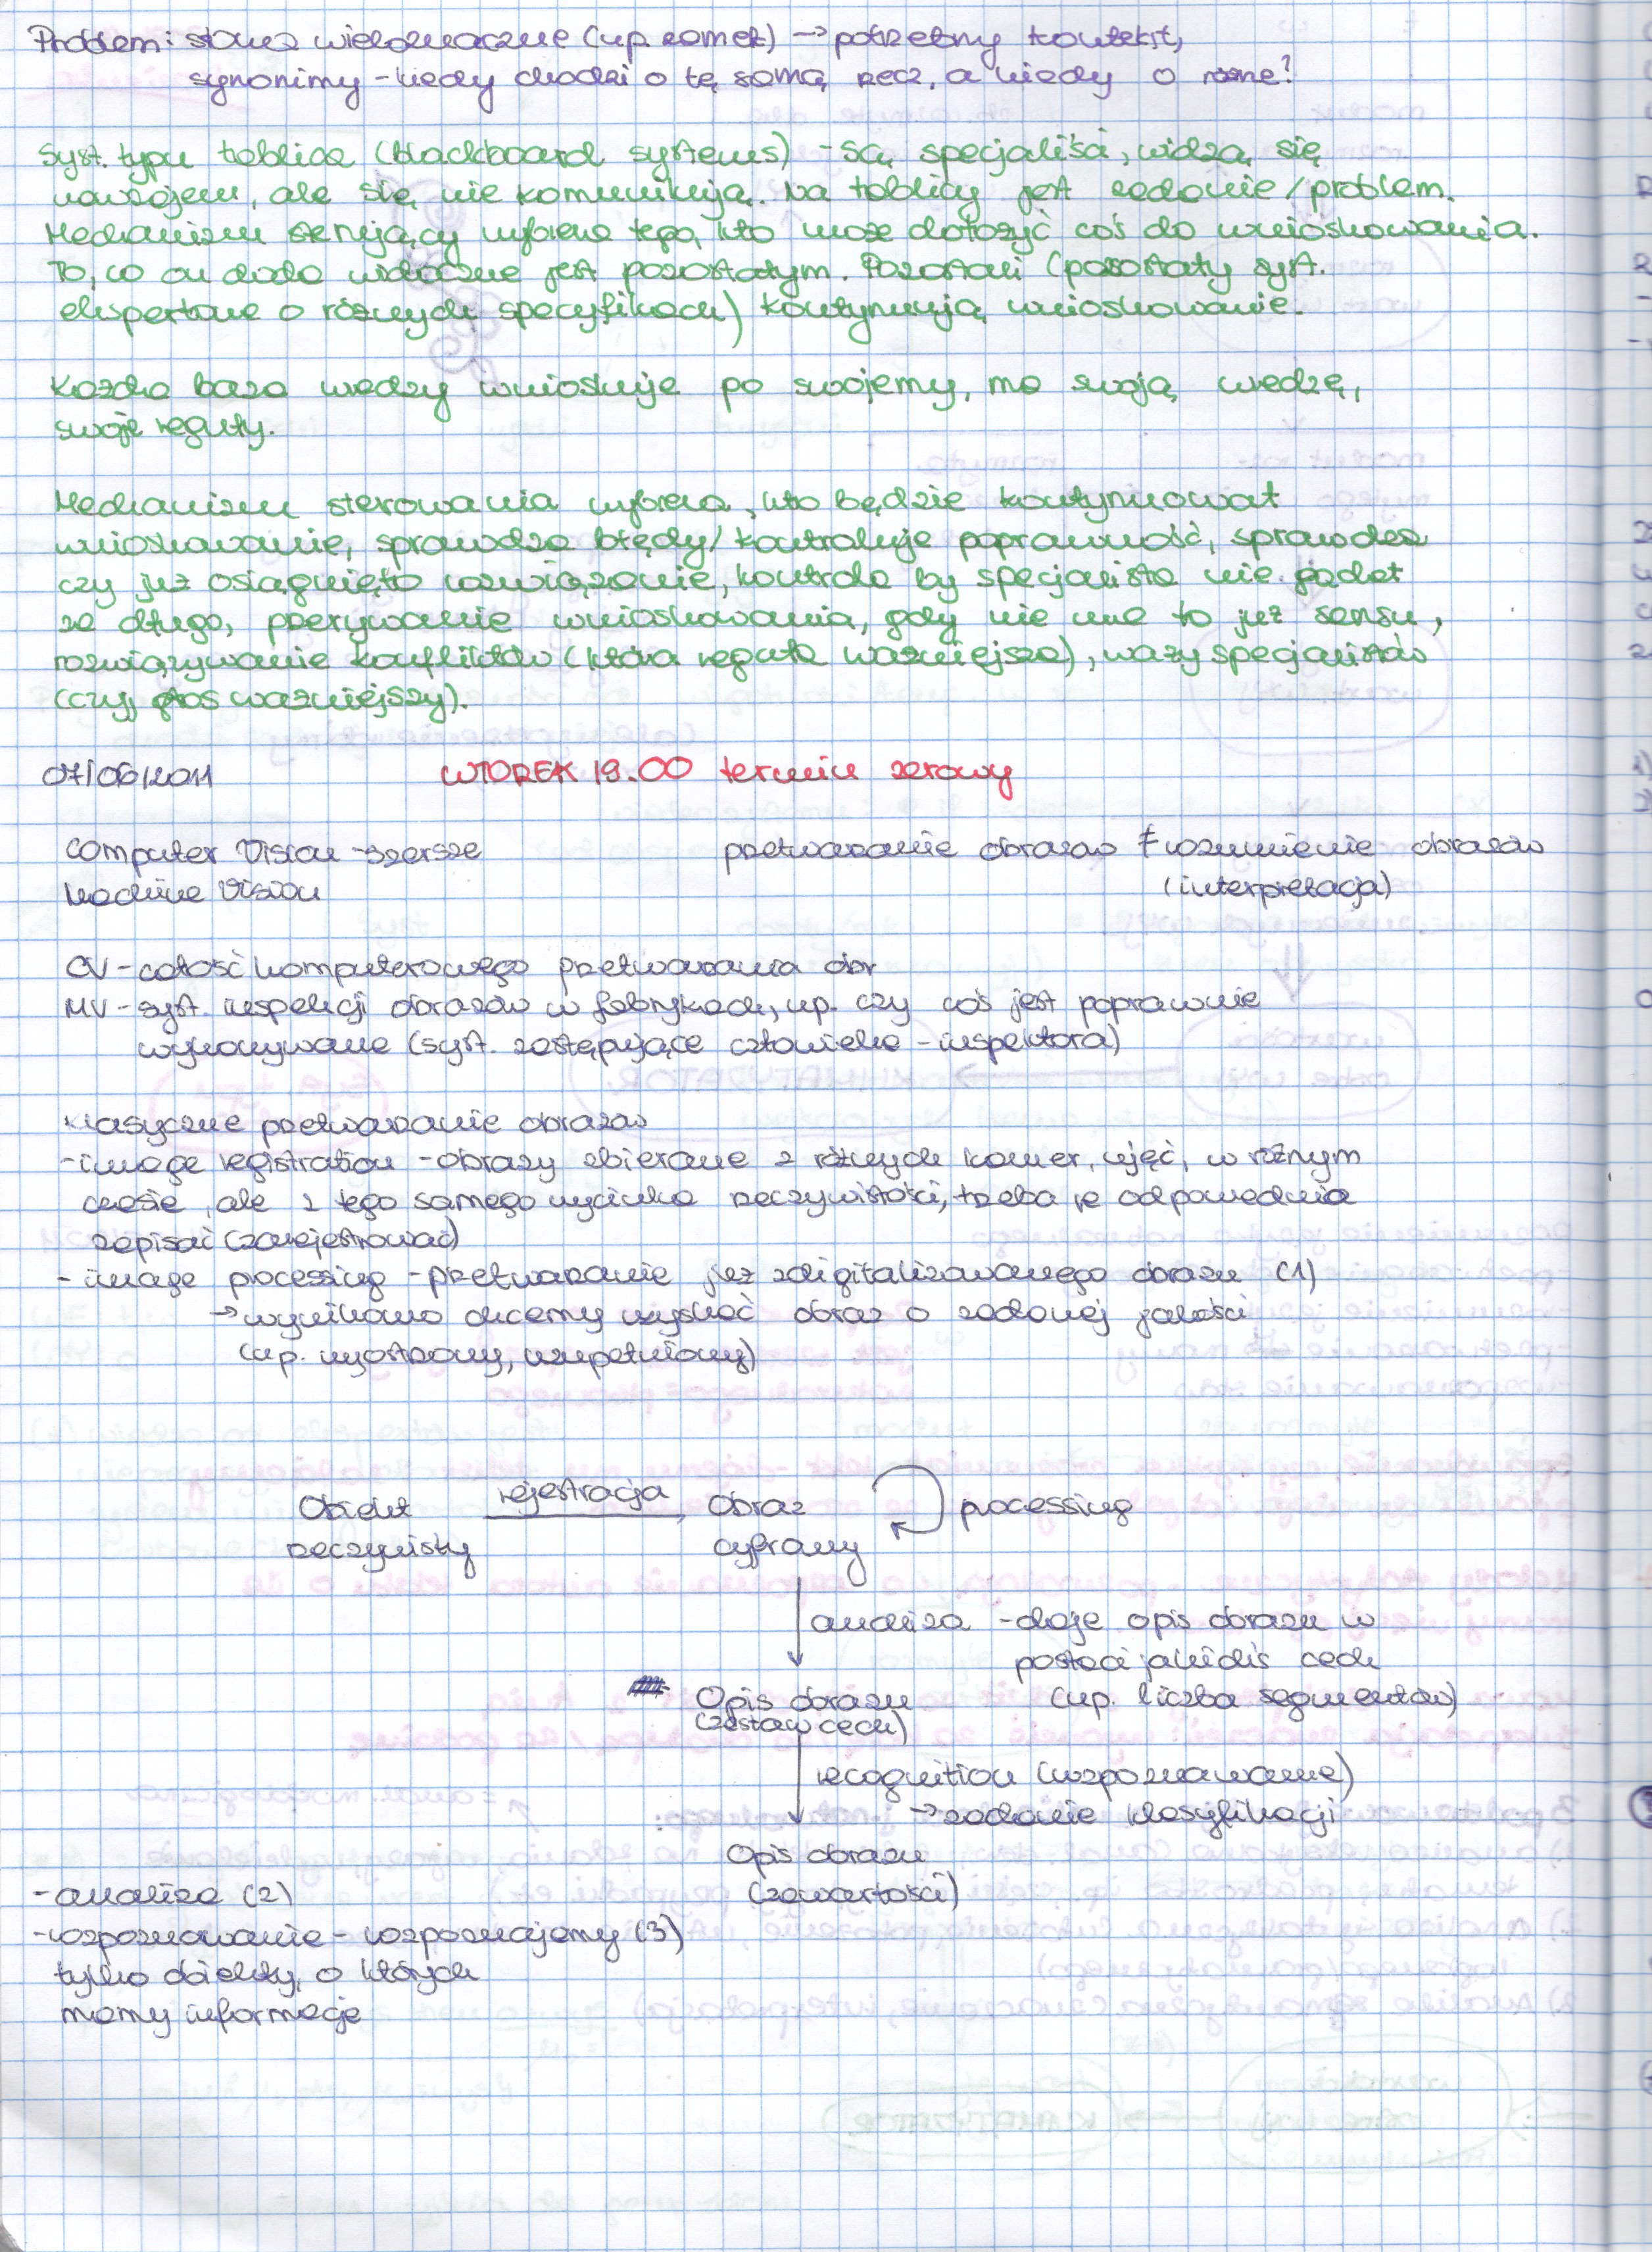 Problem: słowa wieloznaczne (np. zamek) → potrzebny kontekst,
synonimy - kiedy chodzi o tę samą rzecz, a kiedy o różne?
Syst. typu tablica (blackboard systems) - są specjaliści, widzą się
nawzajem, ale się nie komunikują. Na tablicy jest zadanie/problem.
Mechanizm sterujący wybiera tego, kto może dołożyć coś do wnioskowania.
To, co on doda widoczne jest pozostałym. Pozostali (pozostały syst.
ekspertowe o różnych specyfikach) kontynuują wnioskowanie.
Każda baza wiedzy wnioskuje po swojemy, ma swoją wiedzę,
swoje reguły.
Mechanizm sterowania wybiera, kto będzie kontynuował
wnioskowanie, sprawdza błędy/kontroluje poprawność, sprawdza
czy już osiągnięto rozwiązanie, kontrola by specjalista nie gadał
za długo, przerywanie wnioskowania, gdy nie ma to już sensu,
rozwiązywanie konfliktów (która reguła ważniejsza), waży specjalistów
(czyj głos ważniejszy).
07/06/2011 WTOREK 19.00 termin zerowy
Computer Vision - szersze przetwarzanie obrazów ≠ rozumienie obrazów
Machine Vision (interpretacja)
CV - całość komputerowego przetwarzania obr
MV - syst. inspekcji obrazów w fabrykach, np. czy coś jest poprawnie
wykonywane (syst. zastępujące człowieka - inspektora)
Klasyczne przetwarzanie obrazów
- image registration - obrazy zbierane z różnych kamer, ujęć, w różnym
czasie, ale z tego samego wycinka rzeczywistości, trzeba je odpowiednio
zapisać (zarejestrować)
- image processing - przetwarzanie już zdigitalizowanego obrazu (1)
→ wynikowo chcemy uzyskać obraz o zadanej jakości
(np. wyostrzony, uzupełniony)
Obiekt rejestracja Obraz processing
rzeczywisty cyfrowy
analiza - daje opis obrazu w
postaci jakichś cech
Opis obrazu (np. liczba segmentów)
(zestaw cech)
recognition (rozpoznawanie)
→ zadanie klasyfikacji
Opis obrazu
- analiza (2) (zawartości)
- rozpoznawanie - rozpoznajemy (3)
tylko obiekty, o których
mamy informacje